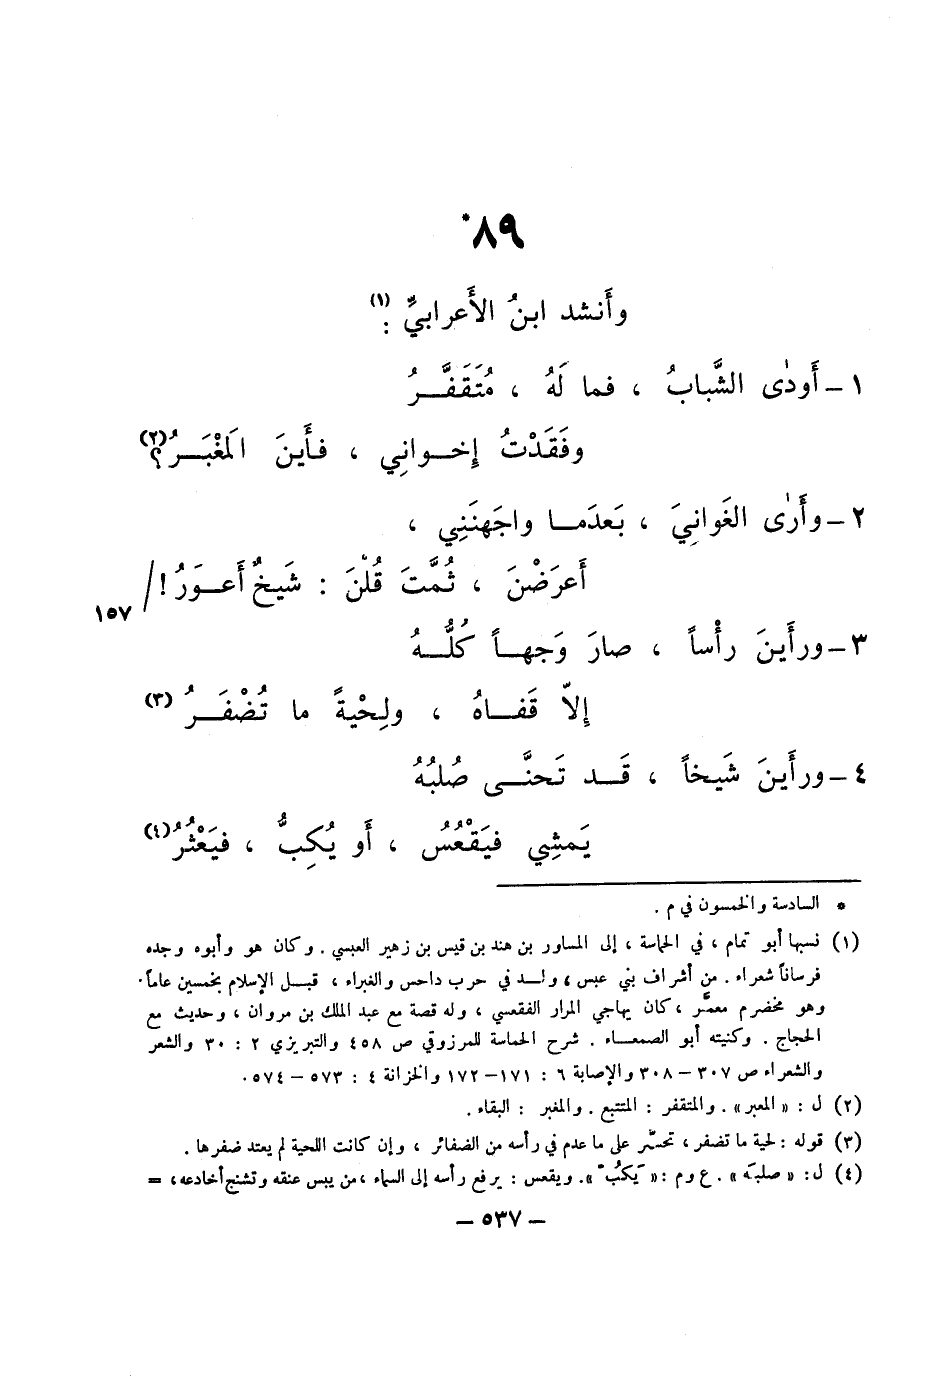 ٨٩*
وأَنشد ابنُ الأَعرابيِّ :(١)
١ – أَودٰى الشَّبابُ ، فما لَهُ ، مُتَقَفَّرُ
وفَقَدْتُ إخواني ، فأَينَ المَغْبَرُ؟(٢)
٢ – وأَرٰى الغَوانيَ ، بَعدَما واجَهنَنِي ،
أَعرَضْنَ ، ثُمَّتَ قُلْنَ : شَيخٌ أَعوَرُ !/
١٥٧
٣ – ورأَينَ رأْساً ، صارَ وَجهاً كُلُّهُ
إلاّ قَفاهُ ، ولِحْيةً ما تُضْفَرُ (٣)
٤ – ورأَينَ شَيخاً ، قَد تَحنَّى صُلبُهُ
يَمشِي فيَقْعُسُ ، أَو يُكِبُّ ، فيَعْثُرُ(٤)
* السادسة والخمسون في م .
(١) نسبها أبو تمام ، في الحماسة ، إلى المساور بن هند بن قيس بن زهير العبسي . وكان هو وأبوه وجده
فرساناً شعراء . من أشراف بني عبس ، ولد في حرب داحس والغبراء ، قبل الإسلام بخمسين عاماً .
وهو مخضرم معمَّر ، كان يهاجي المرار الفقعسي ، وله قصة مع عبد الملك بن مروان ، وحديث مع
الحجاج . وكنيته أبو الصمعاء . شرح الحماسة للمرزوقي ص ٤٥٨ والتبريزي ٢ : ٣٠ والشعر
والشعراء ص ٣٠٧ – ٣٠٨ والإصابة ٦ : ١٧١ – ١٧٢ والخزانة ٤ : ٥٧٣ – ٥٧٤ .
(٢) ل : « المعبر » . والمتقفر : المتتبع . والمغبر : البقاء .
(٣) قوله : لحية ما تضفر ، تحسّر على ما عدم في رأسه من الضفائر ، وإن كانت اللحية لم يعتد ضفرها .
(٤) ل : « صلبَه » . ع وم : « يَكُبُّ » . ويقعس : يرفع رأسه إلى السماء ، من يبس عنقه وتشنج أخادعه ، =
– ٥٣٧ –